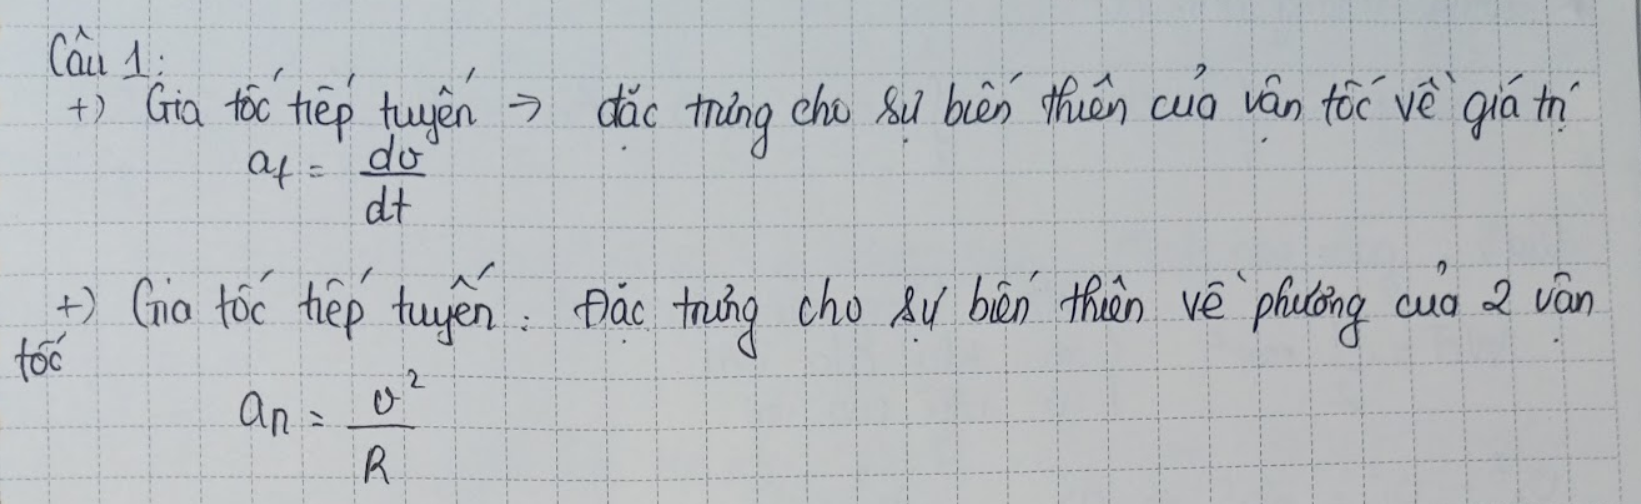 Câu 1:
+) Gia tốc tiếp tuyến → đặc trưng cho sự biến thiên của vận tốc về giá trị
at = dv/dt
+) Gia tốc tiếp tuyến: Đặc trưng cho sự biến thiên về phương của 2 vận
tốc
an = v²/R